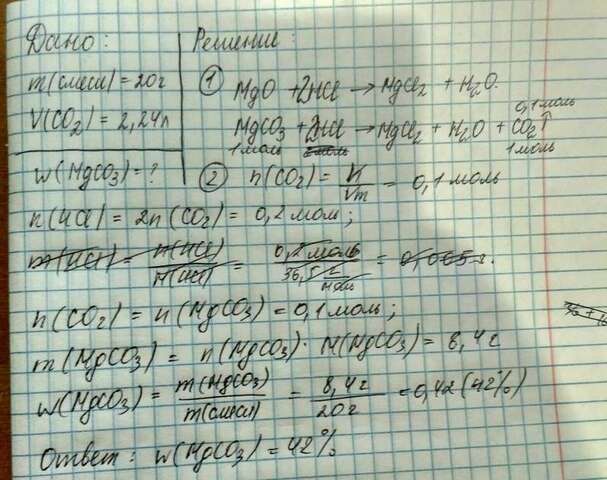 Дано:
m(смеси) = 20г
V(CO₂) = 2,24л
w(MgCO₃) = ?
Решение:
① MgO + 2HCl → MgCl₂ + H₂O.
0,1моль
MgCO₃ + 2HCl → MgCl₂ + H₂O + CO₂↑
1моль 2моль 1моль
② n(CO₂) = V/Vm = 0,1моль
n(HCl) = 2n(CO₂) = 0,2моль;
m(HCl) = n(HCl)/M(HCl) = 0,2моль/36,5 г/моль = 0,005г.
n(CO₂) = n(MgCO₃) = 0,1моль;
m(MgCO₃) = n(MgCO₃) · M(MgCO₃) = 8,4г
w(MgCO₃) = m(MgCO₃)/m(смеси) = 8,4г/20г = 0,42 (42%)
Ответ: w(MgCO₃) = 42%